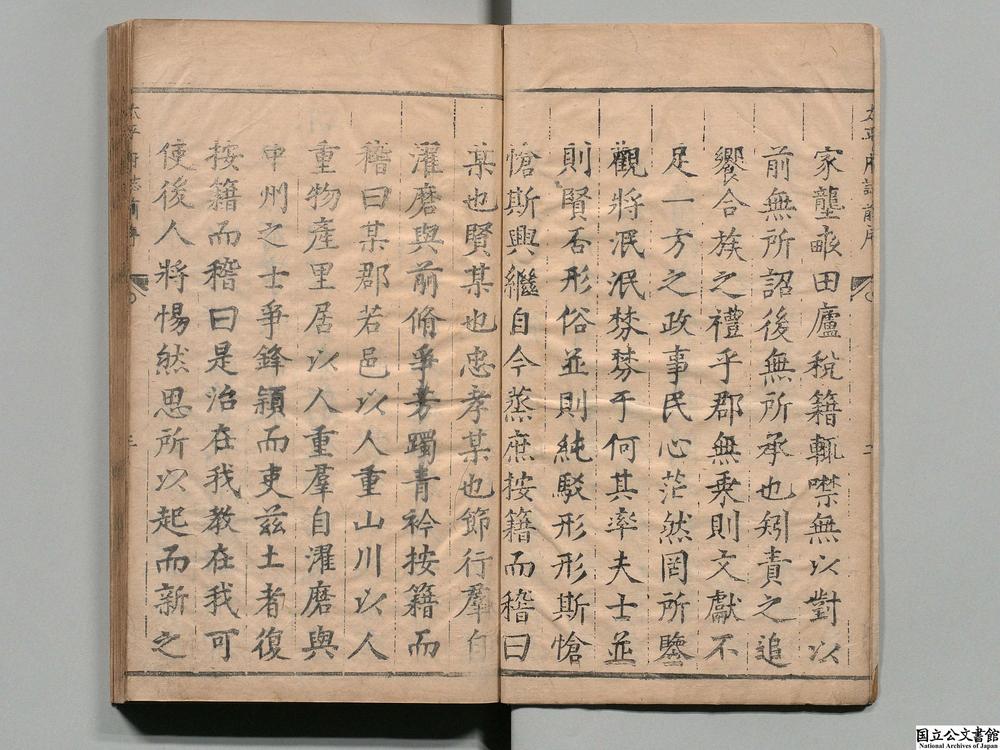 家壟畞田廬稅籍輒噤無以對以
前無所詔後無所承也矧責之追
饗合族之禮乎郡無乘則文獻不
足一方之政事民心茫然罔所鑒
觀將泯泯棼棼于何其率夫士並
則賢否形俗並則純駁形形斯愴
愴斯興繼自今蒸庶按籍而稽曰
某也賢某也忠孝某也節行羣自
濯磨與前脩爭芳躅青衿按籍而
稽曰某郡若邑以人重山川以人
重物產里居以人重羣自濯磨與
中州之士爭鋒穎而吏茲土者復
按籍而稽曰是治在我教在我可
使後人將惕然思所以起而新之
太平府志前序
三
国立公文書館
National Archives of Japan